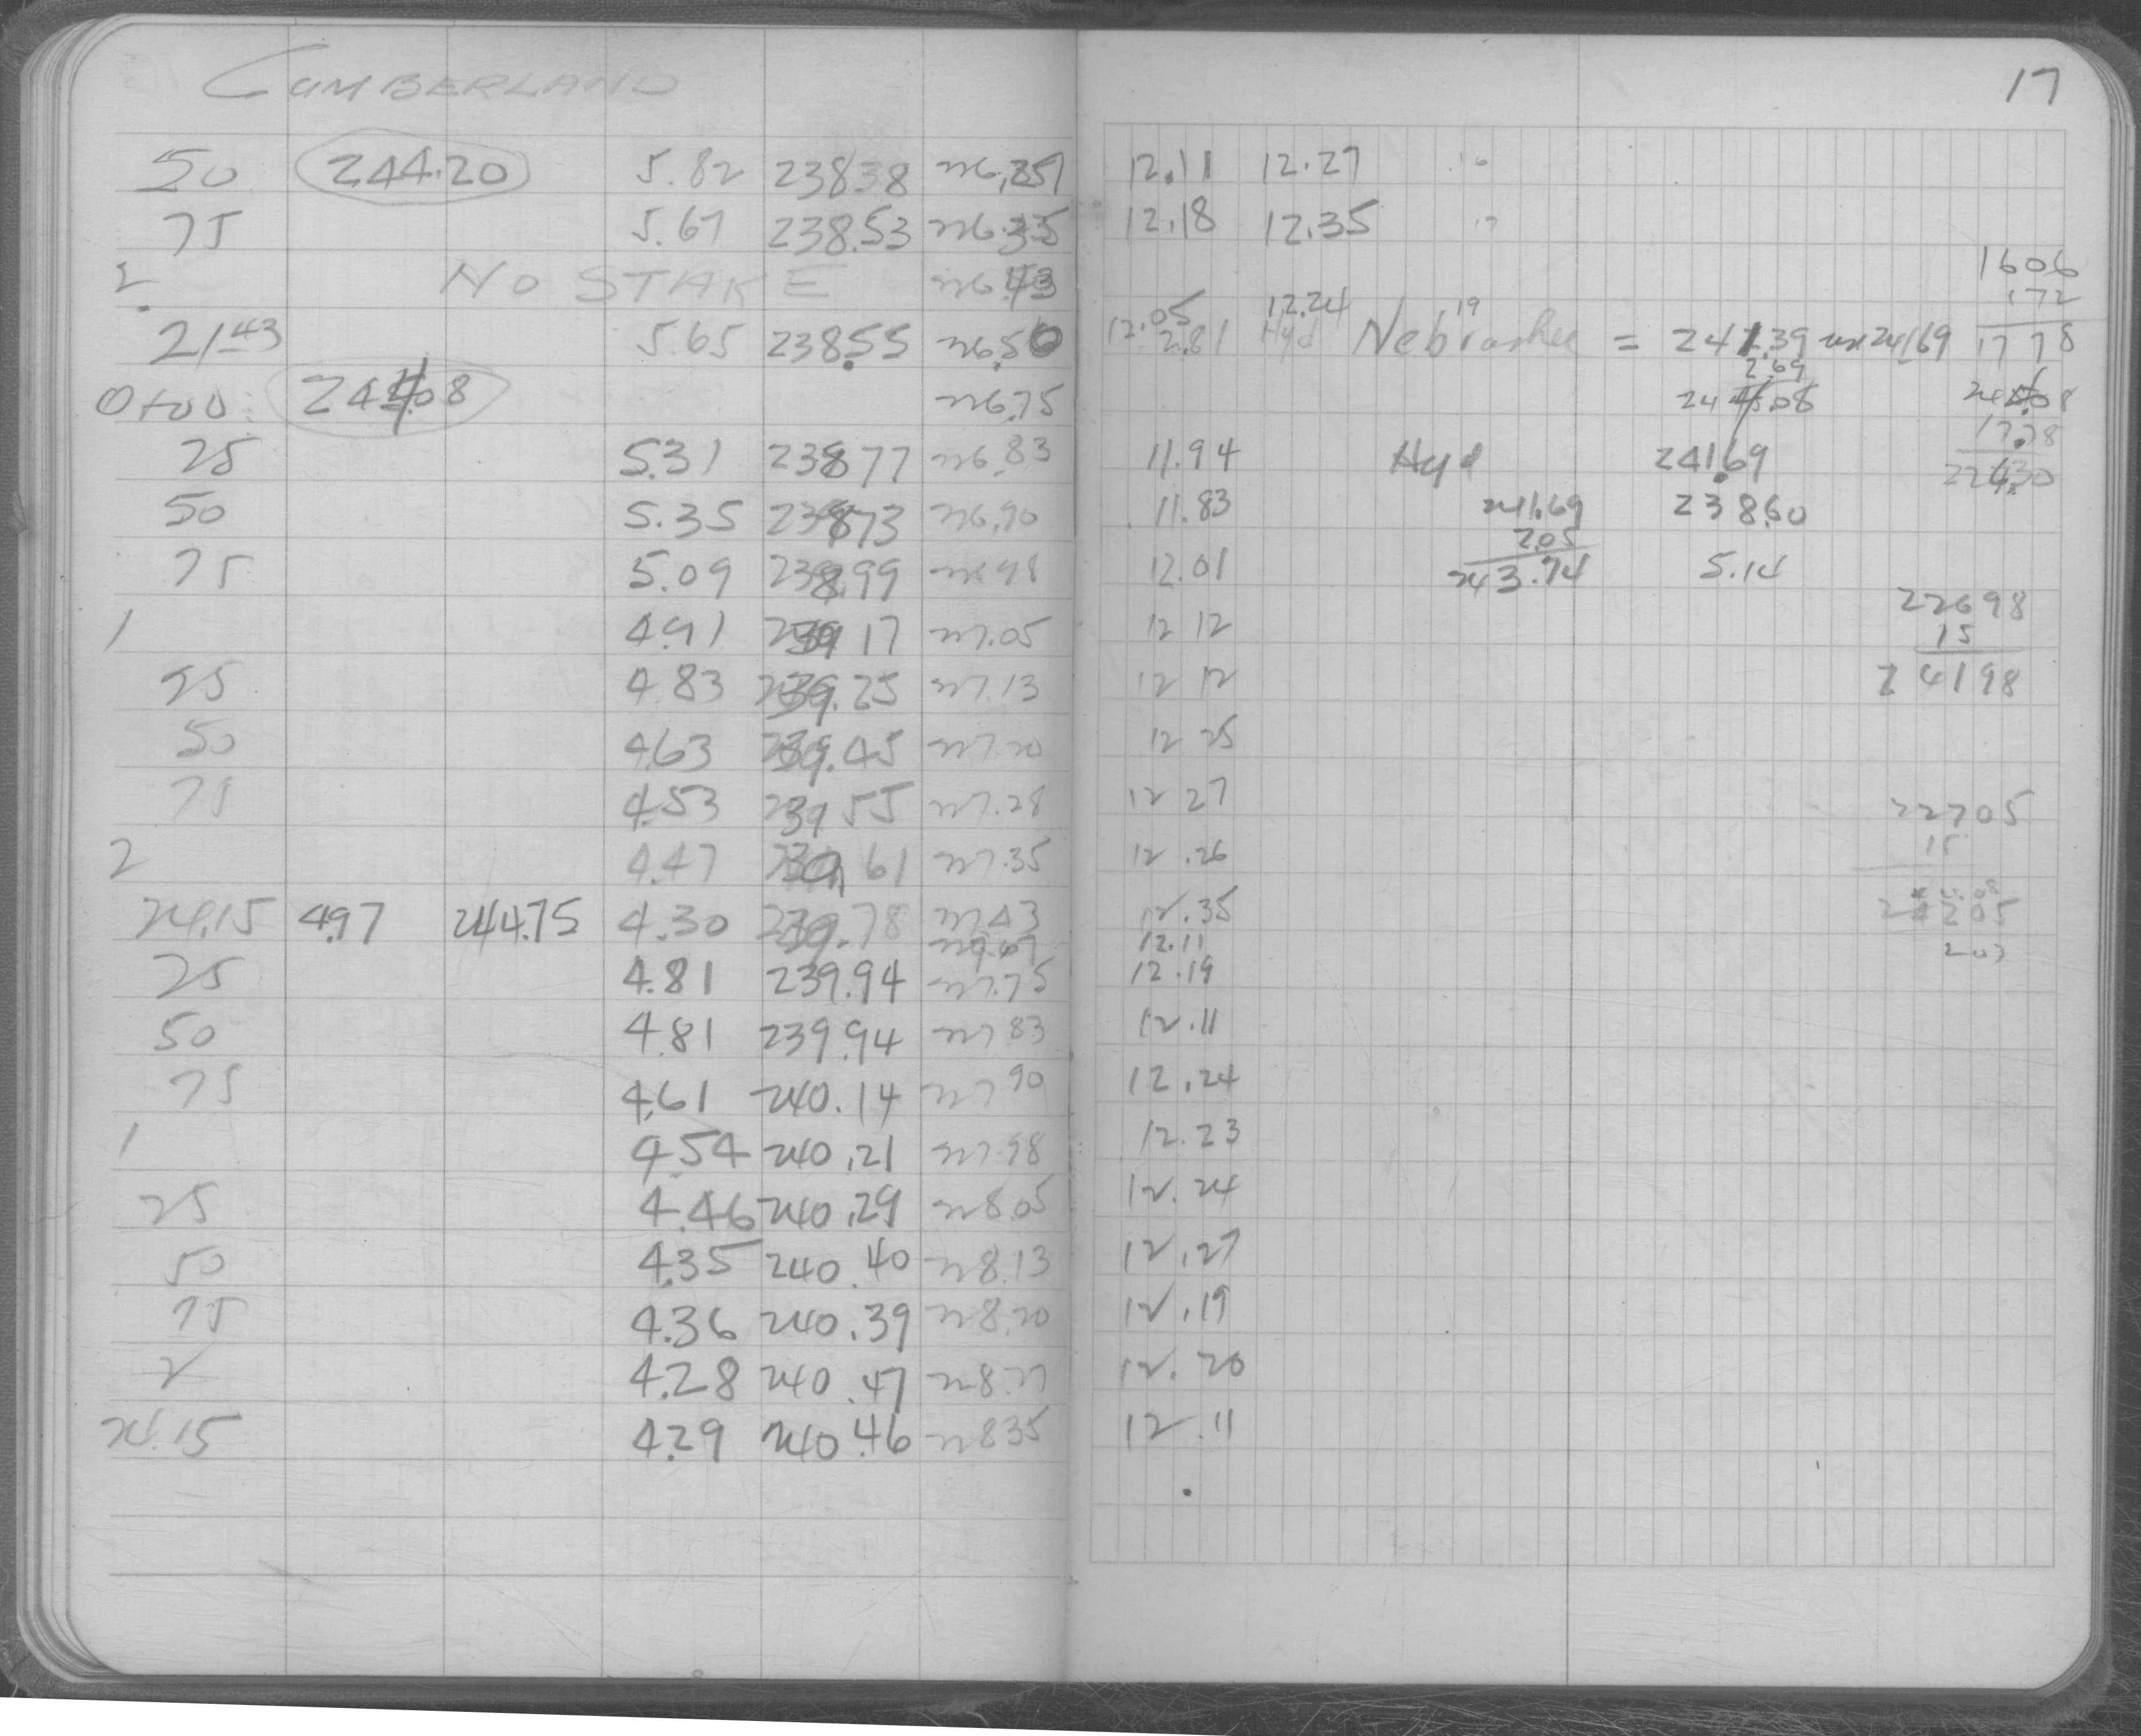 CUMBERLAND
17
50 244.20 5.82 238.38 226.25 12.11 12.27 16
75 5.67 238.53 226.35 12.18 12.35 17
2 NO STAKE 226.43
1606
172
1778
2+43 5.65 238.55 226.50 12.05 2.81 12.24 Hyd Nebraska 19 = 241.39 use 241.69
2.69
0+00 244.08 226.75 244.08 244.08
17.78
226.30
25 5.31 238.77 226.83 11.94 Hyd 241.69
50 5.35 238.73 226.90 11.83 241.69 238.60
2.05
75 5.09 238.99 226.98 12.01 243.74 5.14
1 4.91 239.17 227.05 12 12 22698
15
24198
25 4.83 239.25 227.13 12 12
50 4.63 239.45 227.20 12 25
75 4.53 239.55 227.28 12 27 22705
15
2 4.47 239.61 227.35 12.26
24.15 4.97 244.75 4.30 239.78 227.43 12.35 24205
12.11 207
25 4.81 239.94 227.75 12.19
50 4.81 239.94 227.83 12.11
75 4.61 240.14 227.90 12.24
1 4.54 240.21 227.98 12.23
25 4.46 240.29 228.05 12.24
50 4.35 240.40 228.13 12.27
75 4.36 240.39 228.20 12.19
2 4.28 240.47 228.27 12.20
24.15 4.29 240.46 22835 12.11